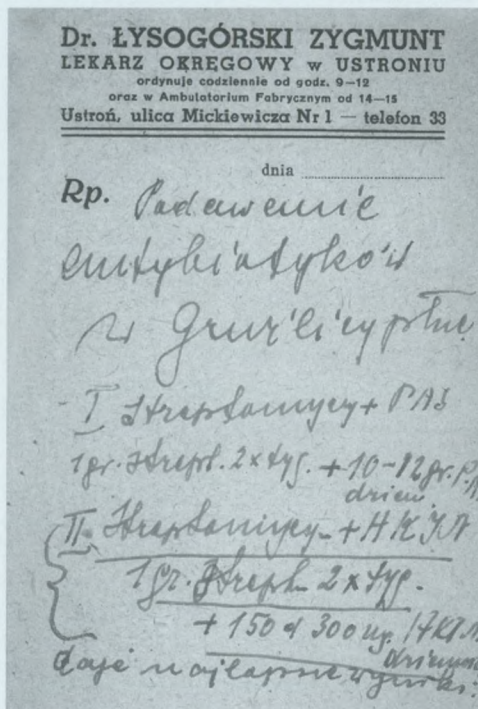 Dr. ŁYSOGÓRSKI ZYGMUNT
LEKARZ OKRĘGOWY w USTRONIU
ordynuje codziennie od godz. 9–12
oraz w Ambulatorium Fabrycznym od 14–15
Ustroń, ulica Mickiewicza Nr 1 — telefon 33
dnia
Rp. Podawanie
antybiotyków
w Gruźlicy płuc
I Streptomycy + PAS
1 gr. Strept. 2 x tyg. + 10-12 gr.
dzien.
II. Streptomycy + HKIN
1 gr. Strept. 2 x tyg.
+ 150 d 300 mg.
daje najlepsze wyniki.